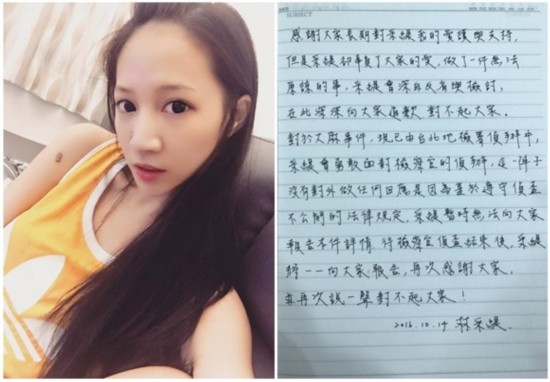 SUBJECT
感謝大家長期對采緹我的愛護與支持，
但是采緹卻辜負了大家的愛，做了一件無法
原諒的事，采緹會深自反省與檢討，
在此深深向大家道歉 對不起大家。
對於大麻事件，現已由台北地檢署偵辦中，
采緹會勇敢面對檢察官的偵辦，這一陣子
沒有對外做任何回應是因為基於遵守偵查
不公開的法律規定，采緹暫時無法向大家
報告本件詳情，待檢察官偵查結束後，采緹
將一一向大家報告，再次感謝大家，
並再次說一聲對不起大家！
2016.10.14 莊采緹.